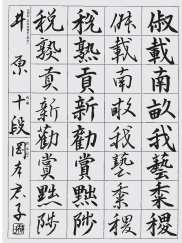 俶載南畝我藝黍稷
俶載南畝我藝黍稷
税熟貢新勸賞黜陟
税熟貢新勸賞黜陟
井原 十段 岡本